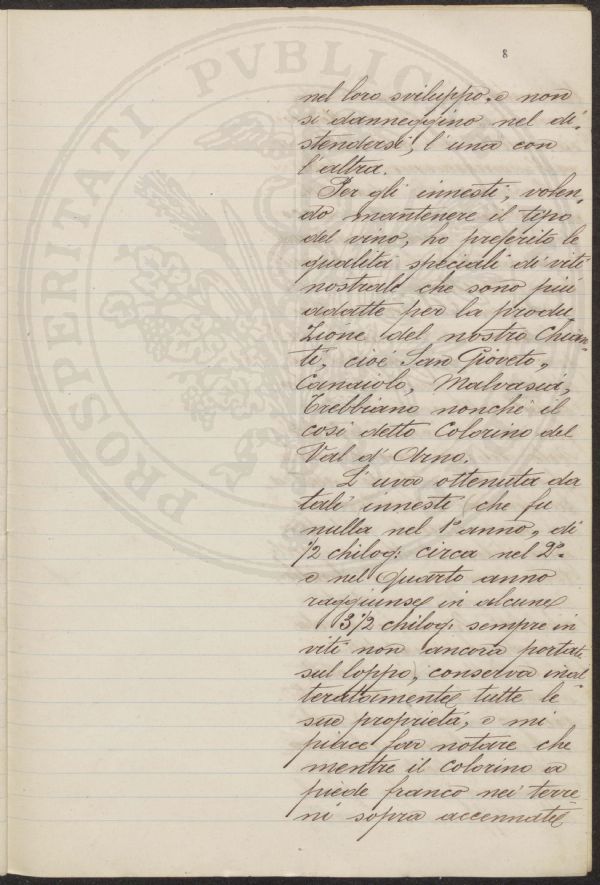 8
PROSPERITATI PVBLIC
nel loro sviluppo, e non
si danneggino nel di,
stendersi, l'una con
l'altra.
Per gli innesti, volen,
do mantenere il tipo
del vino, ho preferito le
qualità speciali di viti
nostrali che sono più
adatte per la produ
zione del nostro Chian,
ti, cioè San Gioveto,
Canaiolo, Malvasia,
Trebbiano nonchè il
così detto Colorino del
Val d'Arno.
L'uva ottenuta da
tali innesti (che fu
nulla nel 1º anno, di
1/2 chilog: circa nel 2º
e nel quarto anno
raggiunse in alcune
3 1/2 chilog: sempre in
viti non ancora portate
sul loppo) conserva inal
teratamente tutte le
sue proprietà, e mi
piace far notare che
mentre il colorino a
piede franco nei terre
ni sopra accennati